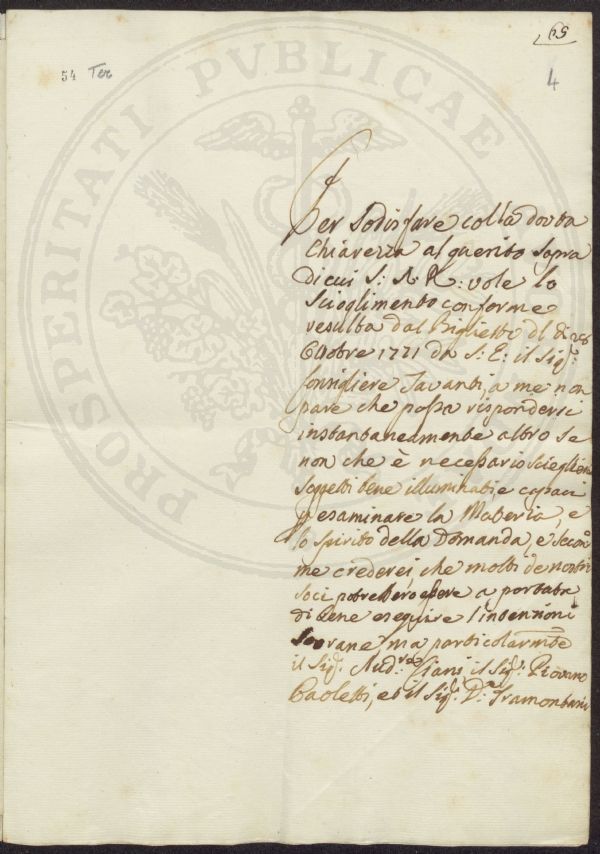 69
54 Ter
4
PROSPERITATI PVBLICAE
Per Sodisfare colla dovta
Chiarezza al quesito sopra
di cui S: A: R: vole lo
Scioglimento conforme
resulta dal Biglietto dl di 28
Ottobre 1771 da S: E: il Sig:r
Consigliere Tavanti, a me non
pare che possa rispondersi
instantaneamente altro se
non che è necessario scieglier
Soggetti bene illuminati e capaci
p esaminare la Materia, e
lo spirito della Domanda, e secon
me crederei, che molti de nostri
soci potrebbero essere a portata
di bene eseguire l'intenzioni
Sovrane, ma particolarmte
il Sig:r Aud:re Giani il Sig:r Piovano
Paoletti, et il Sig:r D:r Tramontani